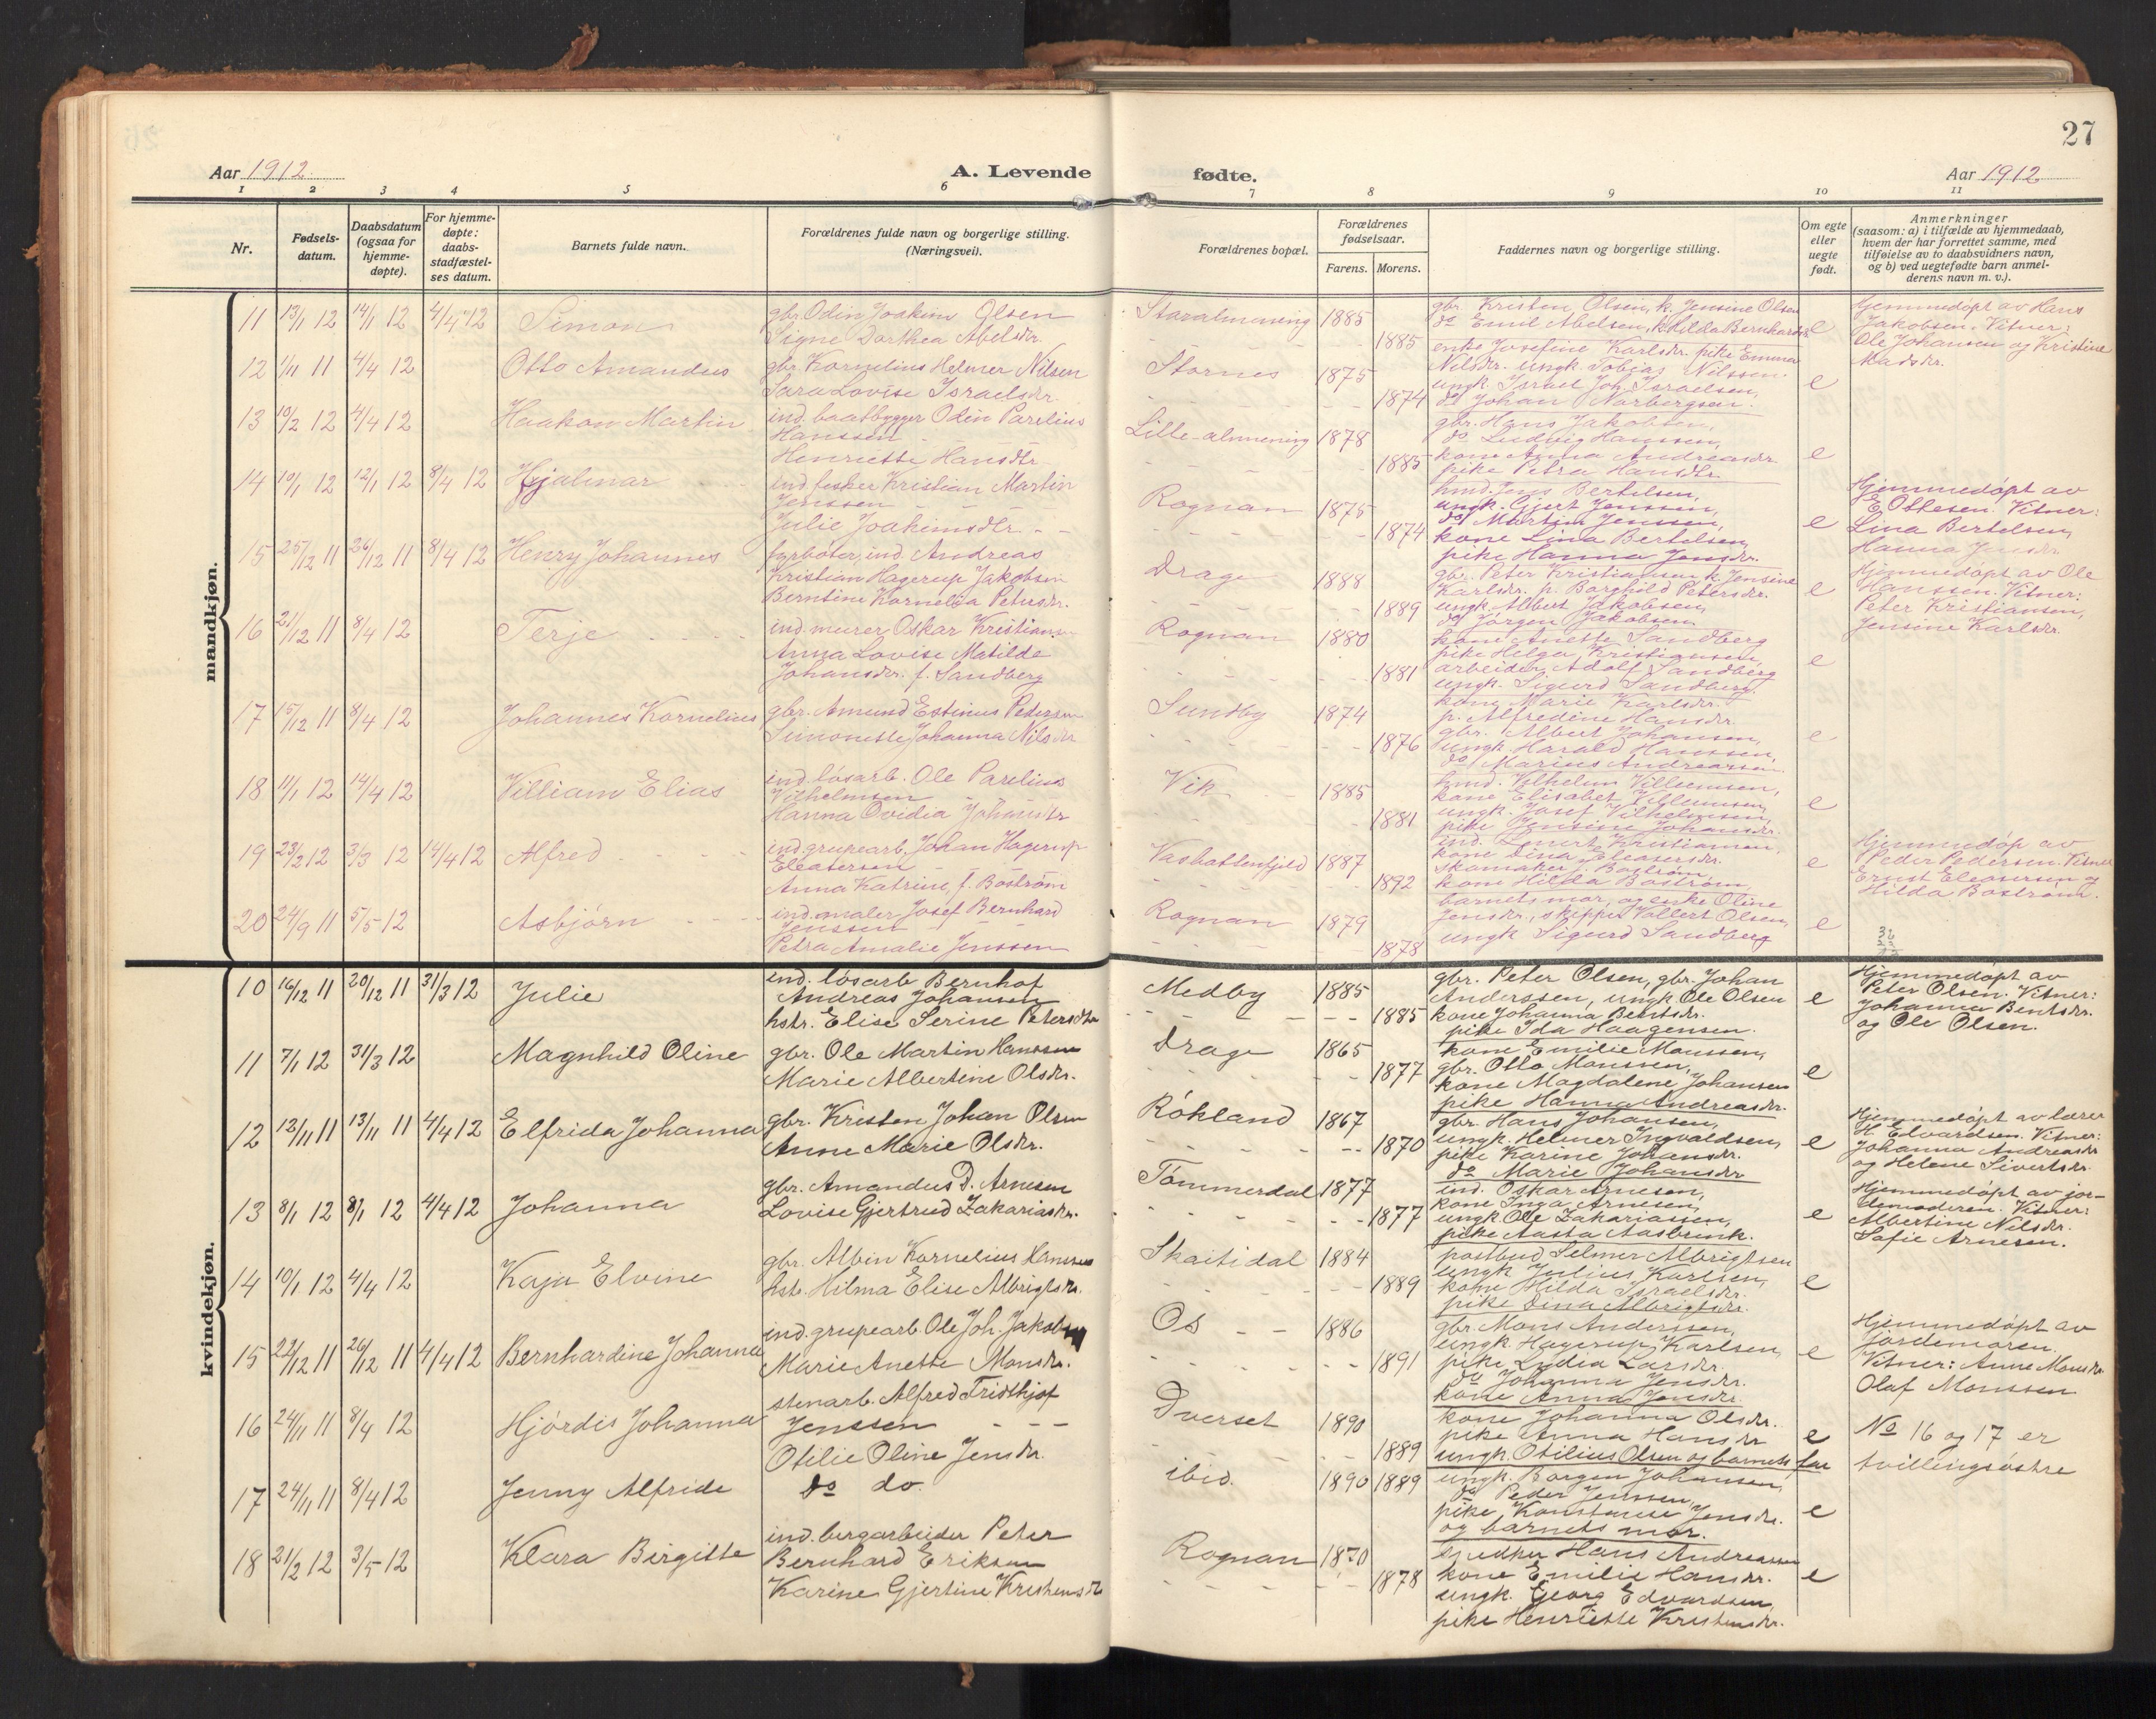 27
Aar 1912
A. Levende
fødte.
Aar 1912
1 2 3 4 5 6 7 8 9 10 11
Nr.
Fødsels-
datum.
Daabsdatum
(ogsaa for
hjemme-
døpte).
For hjemme-
døpte:
daabs-
stadfæstel-
ses datum.
Barnets fulde navn.
Forældrenes fulde navn og borgerlige stilling.
(Næringsvei).
Forældrenes bopæl.
Forældrenes
fødselsaar.
Farens. Morens.
Faddernes navn og borgerlige stilling.
Om egte
eller
uegte
født.
Anmerkninger
(saasom: a) i tilfælde av hjemmedaab,
hvem der har forrettet samme, med
tilføielse av to daabsvidners navn,
og b) ved uegtefødte barn anmel-
derens navn m. v.).
mandkjøn.
11 13/1 12 14/1 12 4/4 12 Simon
gbr. Odin Joakim Olsen
Signe Dorthea Abelsdr.
Storalmening 1885
1885
gbr. Kristen Olsen, k. Jensine Olsen
do Emil Abelsen, k. Hilda Bernhardsdr.
enke Josefine Karlsdr. pike Emma
e
Hjemmedøpt av Hans
Jakobsen. Vitner:
Ole Johansen og Kristine
Madsdr.
12 1/11 11 4/4 12 Otto Amandus
gbr. Kornelius Helmer Nilsen
Sara Lovise Israelsdr.
Stornes 1875
1874
Nilsdr. ungk. Tobias Nilssen.
ungk. Israel Joh. Israelsen,
do Johan Norbergsen.
e
13 10/2 12 4/4 12 Haakon Martin
ind. baatbygger Odin Parelius
Hanssen
Henriette Hansdtr
Lille-almening 1878
1883
gbr. Hans Jakobsen,
do Ludvig Hanssen,
kone Anna Andreasdr.
pike Petra Hansdtr
e
14 10/1 12 12/1 12 8/4 12 Hjalmar
ind. fisker Kristian Martin
Jenssen
Julie Joakimsdtr
Rognan 1875
1874
hmd. Jens Bertelsen,
ungk. Gjert Jenssen,
do Martin Jenssen,
kone Lina Bertelsen,
pike Hanna Jensdr.
e
Hjemmedøpt av
E Ottesen. Vitner:
Lina Bertelsen,
Hanna Jensdr
15 25/12 11 26/12 11 8/4 12 Henry Johannes
fyrbøter, ind. Andreas
Kristian Hagerup Jakobsen
Berntine Kornelia Petersdr.
Drage 1888
1889
gbr. Peter Kristiansen k. Jensine
Karlsdr. p. Borghild Petersdr.
ungk. Albert Jakobsen,
do Jørgen Jakobsen
e
Hjemmedøpt av Ole
Hanssen. Vitner:
Peter Kristiansen,
Jensine Karlsdr.
16 21/12 11 8/4 12 Terje
ind. murer Oskar Kristiansen
Anna Lovise Matilde
Johansdr. f. Sandberg
Rognan 1880
1881
kone Anette Sandberg
pike Helga Kristiansen,
arbeider Adolf Sandberg
ungk. Sigurd Sandberg
e
17 15/12 11 8/4 12 Johannes Kornelius
gbr. Amund Estinus Pedersen
Simonette Johanna Nilsdr
Sundby 1874
1876
kone Marie Karlsdr.
p. Alfredine Hansdr.
gbr. Albert Johansen,
ungk. Harald Hanssen,
do Marius Andreassen
e
18 11/1 12 14/4 12 Villiam Elias
ind. løsarb. Ole Parelius
Vilhelmsen
Hanna Ovidia Johansdtr
Vik 1885
1881
hmd. Vilhelm Villumsen,
kone Elisabet Villumsen,
ungk. Josef Vilhelmsen,
pike Jensine Johansdr.
e
19 23/2 12 3/3 12 14/4 12 Alfred
ind. grupearb. Johan Hagerup
Eleasersen
Anna Katrine, f. Bostrøm
Vasbottenfjeld 1887
1892
ind. Lenert Kristiansen,
kone Dina Eleasersdr.
Skomaker J. Bostrøm,
kone Hilda Bostrøm
e
Hjemmedøp av
Peder Pedersen. Vitner
Ernst Eleasersen og
Hilda Bostrøm.
20 24/9 11 5/5 12 Asbjørn
ind. maler Josef Bernhard
Jenssen
Petra Amalie Jenssen
Rognan 1879
1878
barnets mor, og enke Oline
Jensdr., skipper Vollert Olsen,
ungk Sigurd Sandberg
e
kvindekjøn.
10 16/12 11 20/12 11 31/3 12 Julie
ind. løsarb Bernhof
Andreas Johansen
hstr. Elise Serine Petersdtr
Medby 1885
1885
gbr. Peter Olsen, gbr. Johan
Anderssen, ungk Ole Olsen
kone Johanna Bentsdr.
pike Ida Haagensen.
e
Hjemmedøpt av
Peter Olsen. Vitner:
Johanna Bentsdr.
og Ole Olsen.
11 7/1 12 31/3 12 Magnhild Oline
gbr. Ole Martin Hanssen
Marie Albertine Olsdr.
Drage 1865
1877
kone Emilie Monssen,
gbr. Otto Monssen,
kone Magdalene Johansen
pike Hanna Andreasdr.
e
12 12/11 11 13/11 11 4/4 12 Elfrida Johanna
gbr. Kristen Johan Olsen
Anne Marie Olsdr.
Røkland 1867
1870
gbr. Hans Johansen,
ungk. Helmer Ingvaldsen,
pike Karine Johansdr.
do Marie Johansdr
e
Hjemmedøpt av lærer
H. Edvardsen. Vitner:
Johanna Andreasdr
og Helene Sivertsdr.
13 8/1 12 8/1 12 4/4 12 Johanna
gbr. Amandus D. Arnesen
Lovise Gjertrud Zakariasdr.
Tømmerdal 1877
1877
ind. Oskar Arnesen,
kone Inga Arnesen,
ungk. Ole Zakariassen,
pike Aasta Aasbrink.
e
Hjemmedøpt av jor-
demoderen. Vitner:
Albertine Nilsdr.
Sofie Arnesen.
14 10/1 12 4/4 12 Kaja Elvine
gbr. Albin Kornelius Hanssen
hst. Hilma Elise Albrigtsdr.
Skaitidal 1884
1889
postbud Selmer Albrigtsen
ungk Julius Karlsen,
kone Hilda Israelsdr.
pike Dina Albrigtsdr.
e
15 22/12 11 26/12 11 4/4 12 Bernhardine Johanna
ind. grupearb. Ole Joh. Jakobsen
Marie Anette Monsdr.
Os 1886
1891
gbr. Mons Anderssen,
ungk Hagerup Karlsen,
pike Lydia Larsdr.
do Johanna Jensdr.
kone Anna Jensdr
e
Hjemmedøpt av
jordemoren.
Vitner: Anne Monsdr
Olaf Monssen
16 24/11 11 8/4 12 Hjørdis Johanna
stenarb. Alfred Fridthjof
Jenssen
Otilie Oline Jensdr.
Dverset 1890
1889
kone Johanna Olsdr.
pike Anna Hansdr
ungk. Otilius Olsen og barnets far
e
No 16 og 17 er
tvillingsøstre
17 24/11 11 8/4 12 Jenny Alfride
do do.
ibid. 1890 1889
ungk. Borgen Johansen,
do Peder Jenssen,
pike Konstanse Jensdr.
og barnets mor.
e
18 21/2 12 3/5 12 Klara Birgitte
ind. bergarbeider Peter
Bernhard Eriksen
Karine Gjertine Kristensdr
Rognan 1870
1878
Hans Andreassen
kone Emilie Hansdr.
ungk. Georg Edvardsen,
pike Henriette Kristensdr.
e